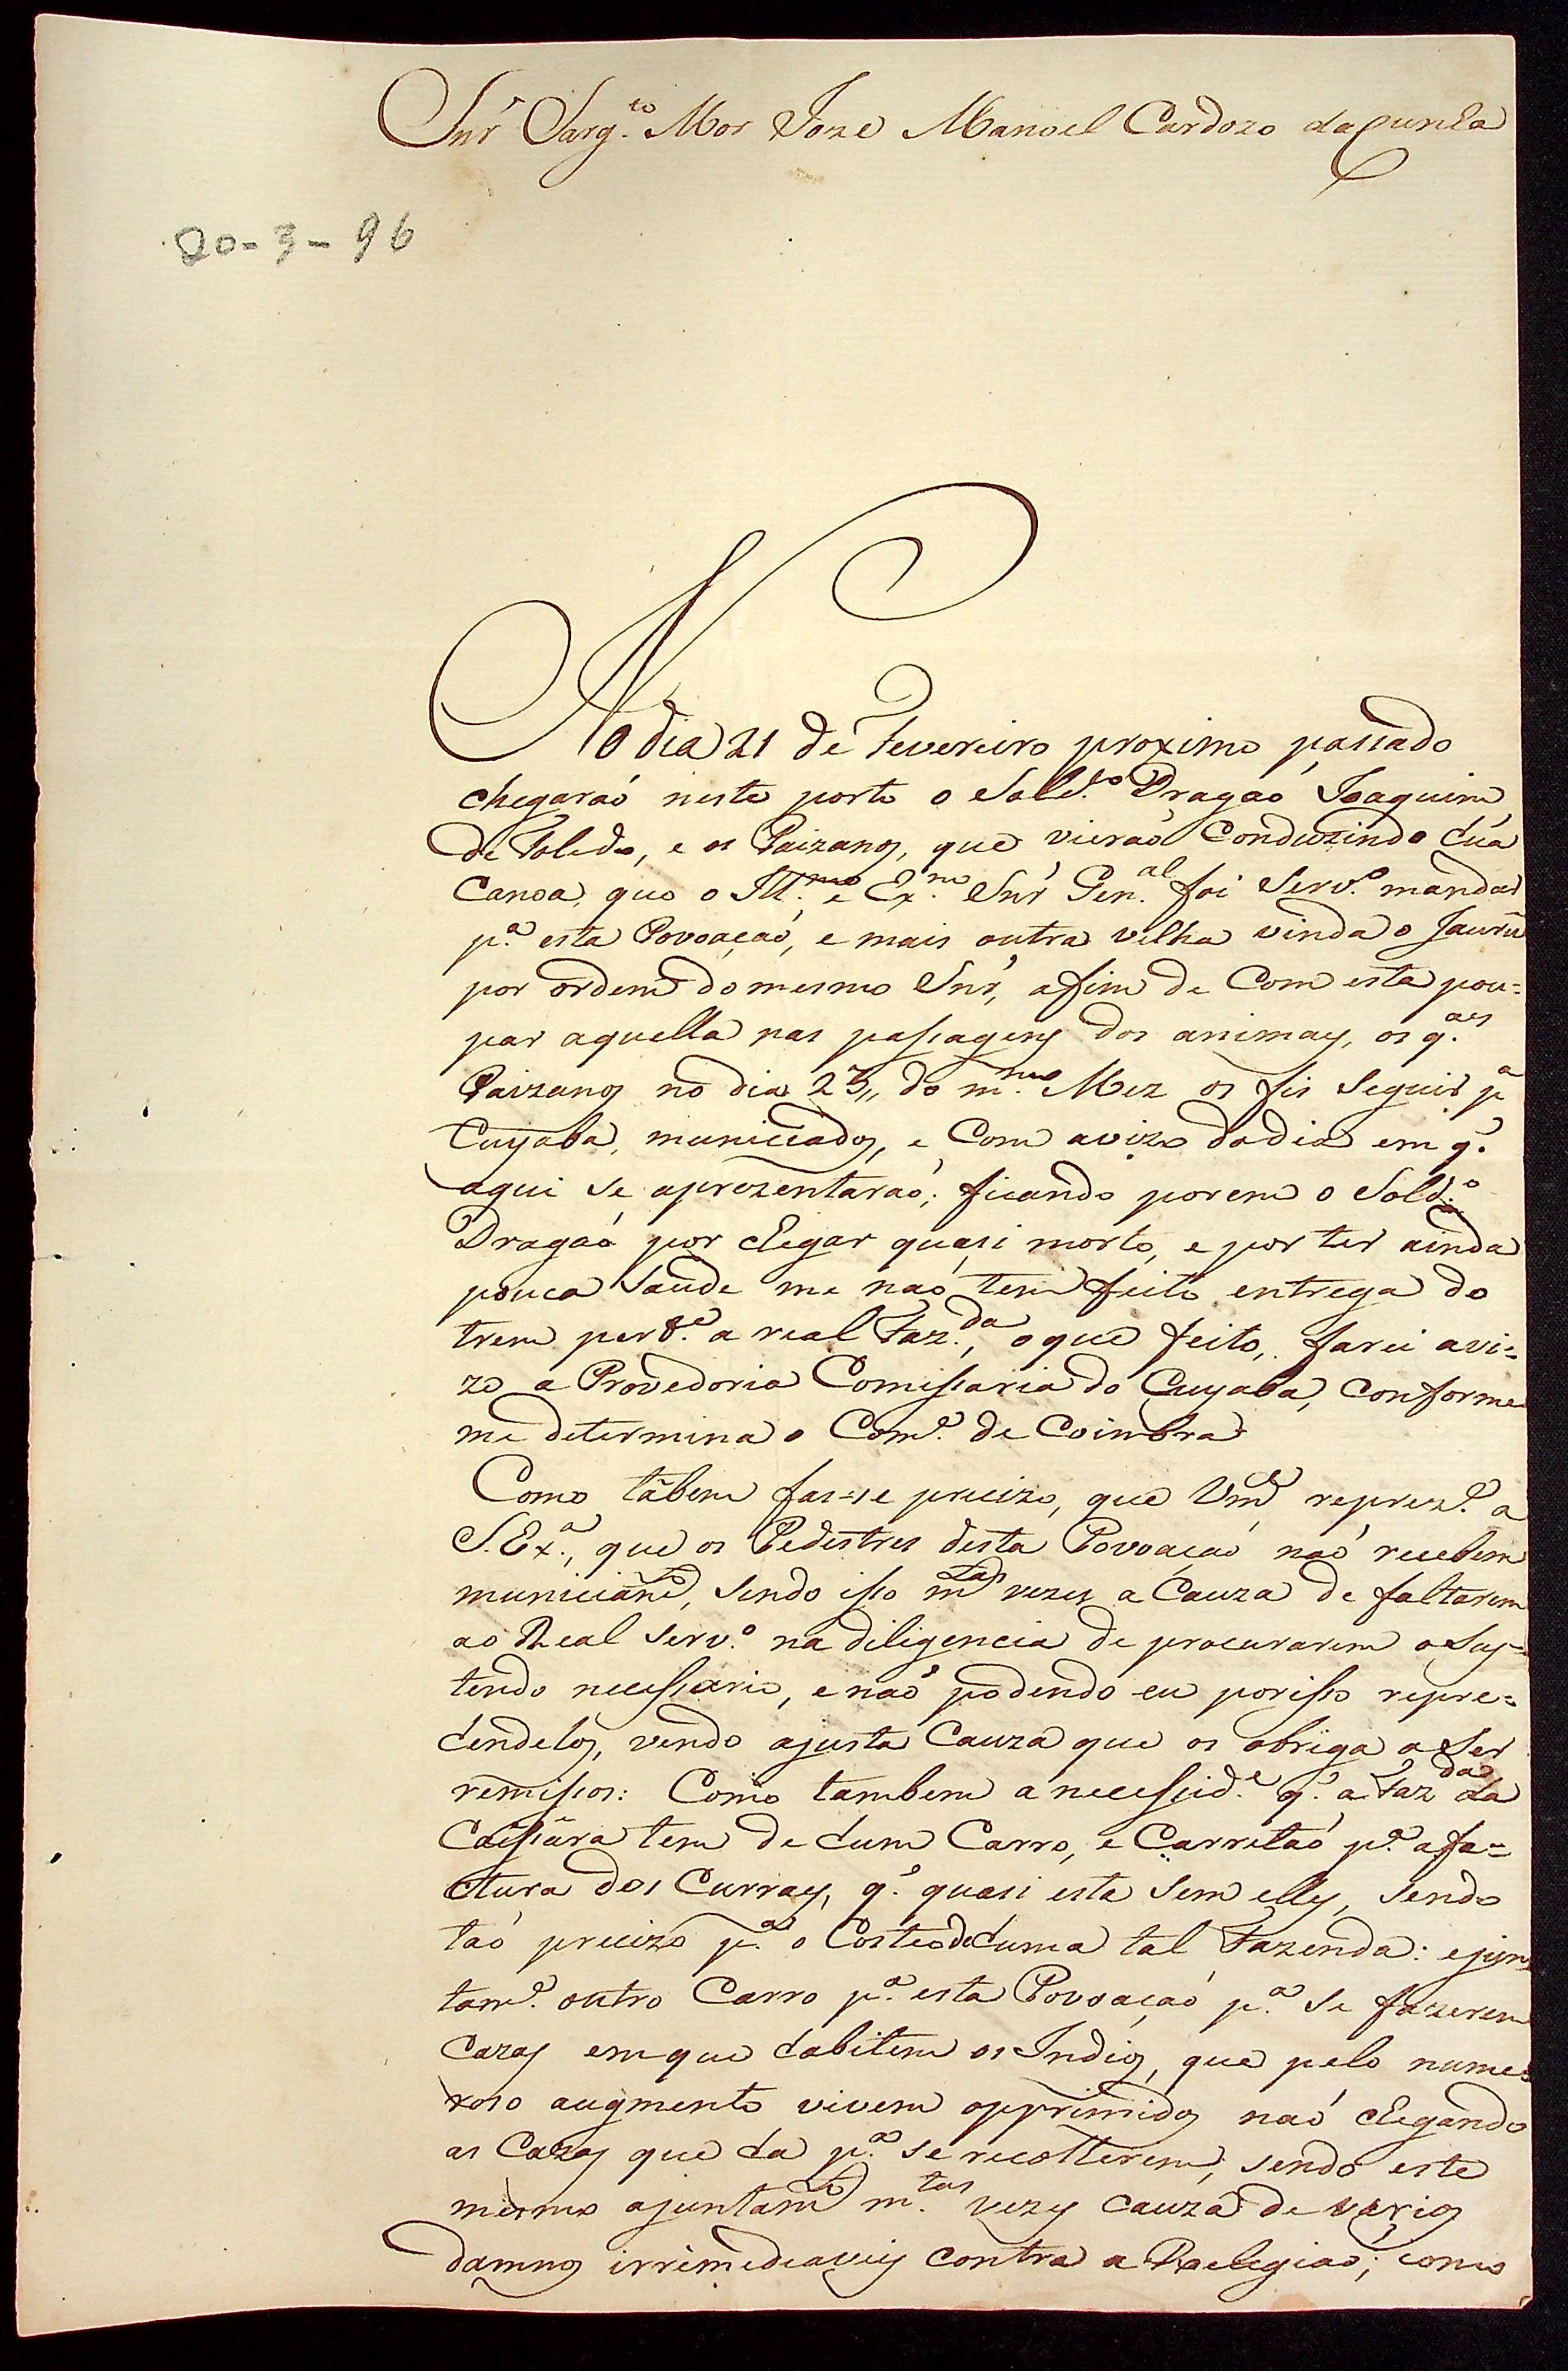 Snr̃ Sarg.to Mor Joze Manoel Cardozo da Cunha
20-3-96
No dia 21 de Fevereiro proximo passado
chegaraõ neste porto o Sold.o Dragaõ Joaquim
de Toledo, e os Paizanos, que vieraõ Conduzindo hũa
Canoa, que o Ill.mo e Ex.mo Snr̃ Gen.al foi Serv.o mandar
p.a esta Povoaçaõ, e mais outra velha vinda o Jaurú
por ordem do mesmo Snr̃, afim de Com esta pou=
par aquella nas passagens dos animaes, os q.aes
Paizanos no dia 23,, do m.mo Mez os fis Seguir p.a
Cuyabá, municiados, e Com avizo do dia em q.'
aqui se aprezentaraõ; ficando porem o Sold.o
Dragaõ por chegar quasi morto, e por ter ainda
pouca Saude me naõ tem feito entrega do
trem pert.e a real Faz.da, o que feito, farei avi=
zo a Provedoria Comissaria do Cuyabá, conforme
me determina o Com.e de Coimbra
Como tãbem fas-se precizo, que Vm.ce reprez.e a
S. Ex.a, que os Pedestres desta Povoaçaõ naõ recebem
municiam.to, sendo isso m.tas vezes a Cauza de faltarem
ao Real Serv.o na diligencia de procurarem o Sus=
tendo necessario, e naõ podendo eu porisso repre=
hendelos, vendo ajusta Cauza que os obriga a Ser
remissos: Como tambem a necessid.e q.' a Faz.da da
Caissara tem de hum Carro, e Carretaõ p.a a fa=
ctura dos Curraes, q.' quasi esta Sem elles, Sendo
taõ precizo p.a o Costeo de huma tal Fazenda: e jun
tam.e outro Carro p.a esta Povoaçaõ p.a Se fazerem
Cazas emque habitem os Indios, que pelo nume
rozo augmento vivem opprimidos naõ chegando
as Cazas que ha p.a se recolherem, sendo este
mesmo ajuntam.to m.tas vezes cauza de varios
damnos irrimediaveis contra a Relegiaõ; como